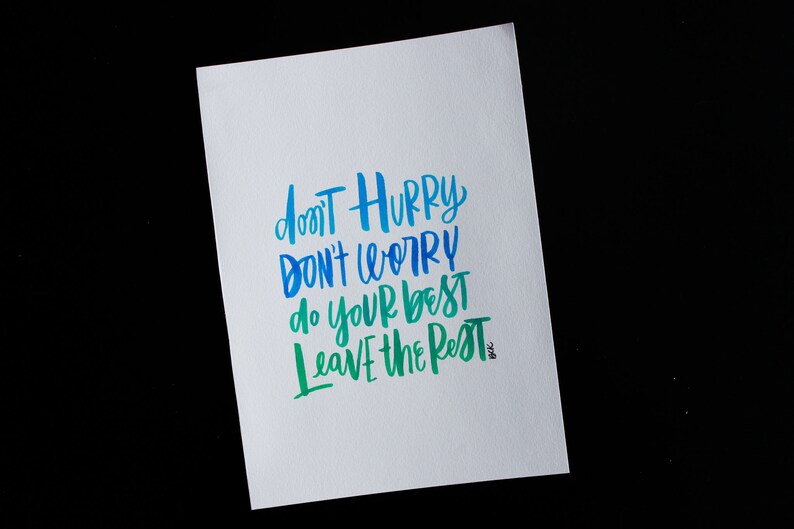 don't HURRY
DON't WORRY
do YOUR best
Leave the Rest